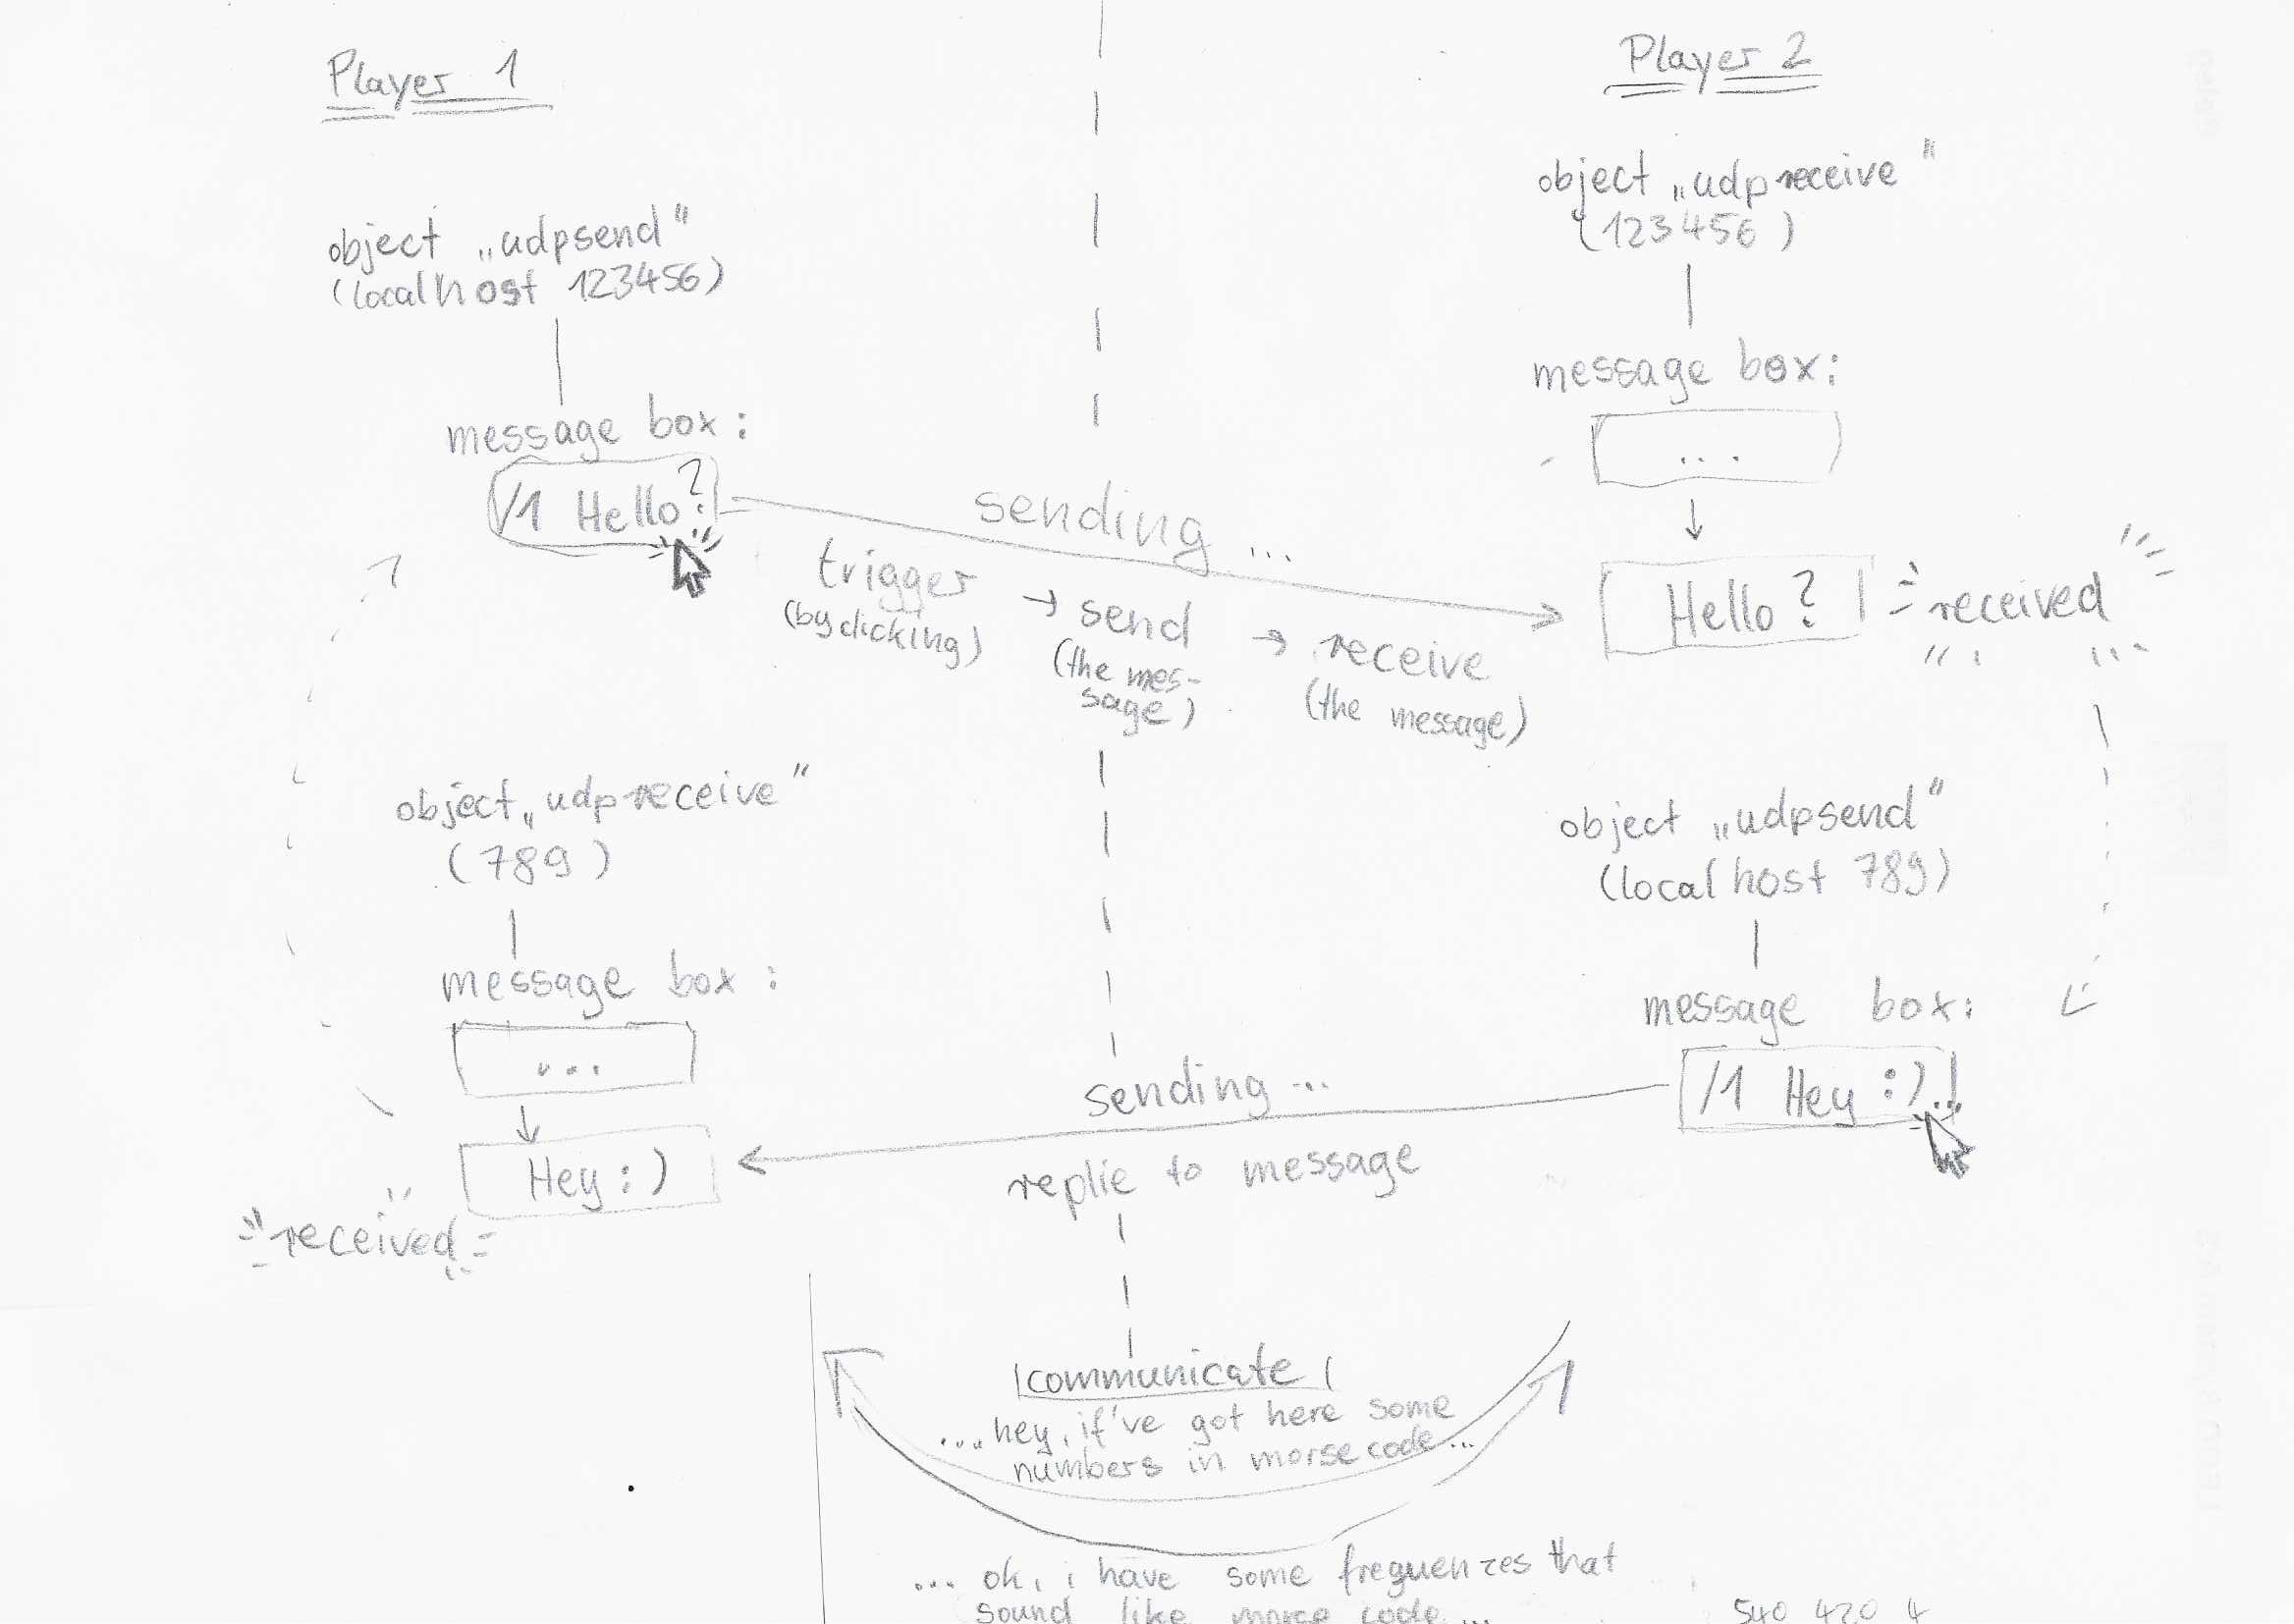 Player 1
object „udpsend"
(localhost 123456)
message box:
/1 Hello?
Player 2
object „udpreceive"
(123456)
message box:
...
Hello?
received
sending ...
trigger
(by clicking)
→ send
(the mes-
sage)
→ receive
(the message)
object „udpreceive"
(789)
message box:
...
Hey :)
received
object „udpsend"
(localhost 789)
message box:
/1 Hey :)
sending ...
replie to message
communicate
... hey, if've got here some
numbers in morse code ...
... ok, i have some frequenzes that
sound like morse code ...
540 420 4